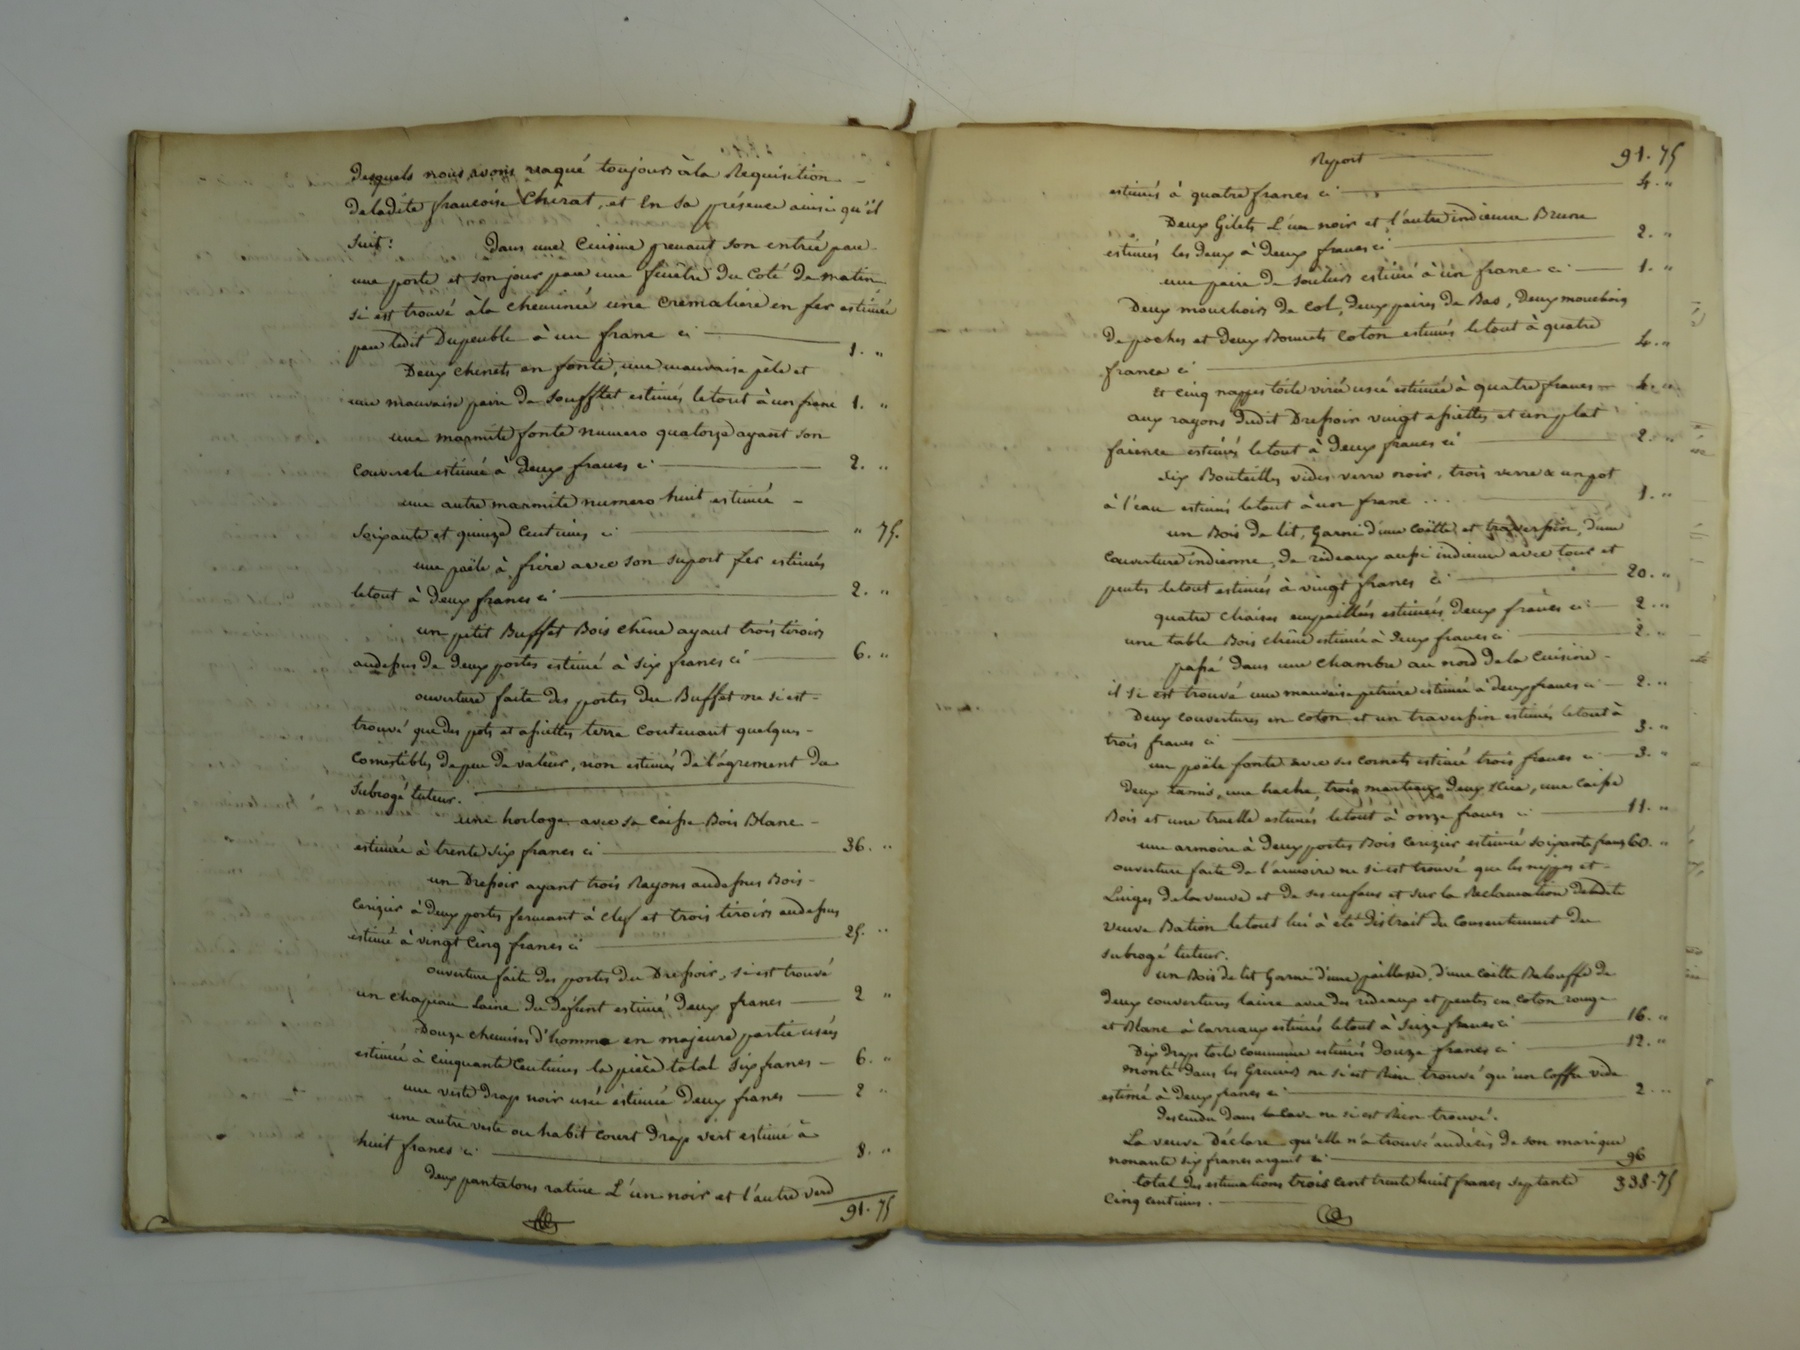 desquels nous avons vaqué toujours à la Requisition
de ladite francoise Chirat, et En sa présence ainsi qu'il
suit: Dans une Cuisine prenant son entrée par
une porte et son jour par une fenêtre du Coté de matin
si est trouvé à la cheminée une Cremaliere en fer estimée
par ledit Dupeuble à un franc ci 1. "
Deux chenets en fonte, une mauvaise pèle et
une mauvaise paire de Soufflet estimés letout à un franc 1. "
une marmite fonte numero quatorze ayant son
couvercle estimée à deux francs ci 2. "
une autre marmite numero huit estimée
Soixante et quinze Centimes ci " 75.
une poële à frire avec son suport fer estimés
letout à deux francs ci 2. "
un petit Buffet Bois chêne ayant trois tiroirs
audessus de deux portes estimé à six francs ci 6. "
ouverture faite des portes du Buffet ne si est
trouvé que des pots et assiettes terre contenant quelques
Comestibles de peu de valeur, non estimés de l'agrement du
Subrogé tuteur.
une horloge avec sa Caisse Bois Blanc
estimée à trente six francs ci 36. "
un Dressoir ayant trois Rayons audessus Bois
Cerizier à deux portes fermant à clef et trois tiroirs audessus
estimé à vingt Cinq francs ci 25. "
ouverture faite des portes du Dressoir, si est trouvé
un chapeau Laine du Défunt estimé deux francs 2 "
Douze chemises d'homme en majeure partie usées
estimée à cinquante Centimes la pièce total Six francs 6. "
une veste drap noir usée estimée Deux francs 2 "
une autre veste ou habit court drap vert estimé à
huit francs ci 8. "
deux pantalons ratine L'un noir et l'autre verd
91. 75
Report 91. 75
estimés à quatre francs ci 4. "
Deux Gilets L'un noir et l'autre indienne Brune
estimés les deux à deux francs ci 2. "
une paire de souliers estimée à un franc ci 1. "
Deux mouchoirs de Col, deux paires de Bas, Deux mouchoirs
de poches et deux Bonnets Coton estimés letout à quatre
francs ci 4. "
Et Cinq nappes toile usée estimée à quatre francs 4. "
aux rayons dudit Dressoir vingt assiettes et un plat
faience estimés letout à deux francs ci 2. "
Six Bouteilles vides verre noir, trois verre & un pot
à l'eau estimés letout à un franc ... 1. "
un Bois de lit, Garni d'une Coëtte et traversin, d'une
Couverture indienne, de rideaux aussi indienne avec tour et
pentes letout estimés à vingt francs ci 20. "
quatre chaises empaillées estimées deux francs ci 2. "
une table Bois chêne estimée à deux francs ci 2. "
passé dans une chambre au nord de la Cuisine
il si est trouvé une mauvaise petrière estimée à deux francs ci 2. "
Deux couvertures en coton et un traversin estimés letout à
trois francs ci 3. "
un poële fonte avec ses Cornets estimé trois francs ci 3. "
deux tamis, une hache, trois marteaux deux scies, une Caisse
Bois et une truelle estimés letout à onze francs ci 11. "
une armoire à Deux portes Bois Cerizier estimée soixante francs 60. "
ouverture faite de l'armoire ne si est trouvé que les nippes et
Linges de la veuve et de ses enfans et sur la Reclamation de ladite
veuve Bation letout lui à été distrait du Consentement du
subrogé tuteur.
un Bois de lit Garni d'une paillasse, d'une Coëtte Balouffe de
deux couvertures laine avec des rideaux et pentes en Coton rouge
et Blanc à Carreaux estimés letout à Seize francs ci 16. "
Dix draps toile commune estimés douze francs ci 12. "
Monté dans les Greniers ne si est Rien trouvé qu'un Coffre vide
estimé à deux francs ci 2. "
descendu dans la Cave ne si est Rien trouvé.
La veuve Déclare qu'elle n'a trouvé au décès de son mari que
nonante six francs argent ci 96
total des estimations trois cent trente huit francs septante 338. 75
Cinq centimes.